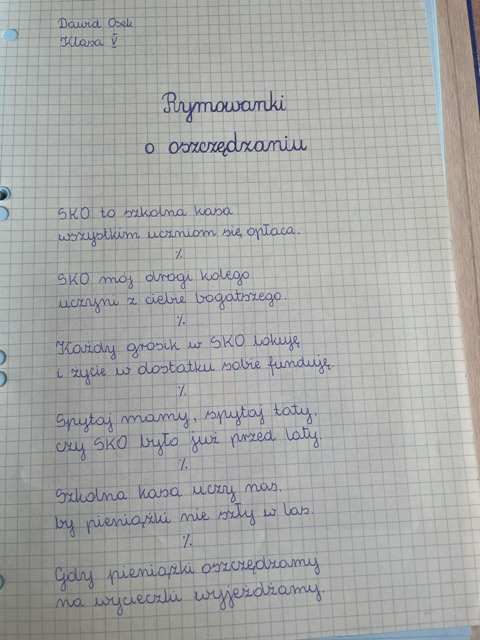 Dawid Osek
Klasa V
Rymowanki
o oszczędzaniu
SKO to szkolna kasa
wszystkim uczniom się opłaca.
%
SKO mój drogi kolego
uczyni z ciebie bogatszego.
%
Każdy grosik w SKO lokuję
i życie w dostatku sobie funduję.
%
Spytaj mamy, spytaj taty,
czy SKO było już przed laty.
%
Szkolna kasa uczy nas,
by pieniążki nie szły w las.
%
Gdy pieniążki oszczędzamy
na wycieczki wyjeżdżamy.